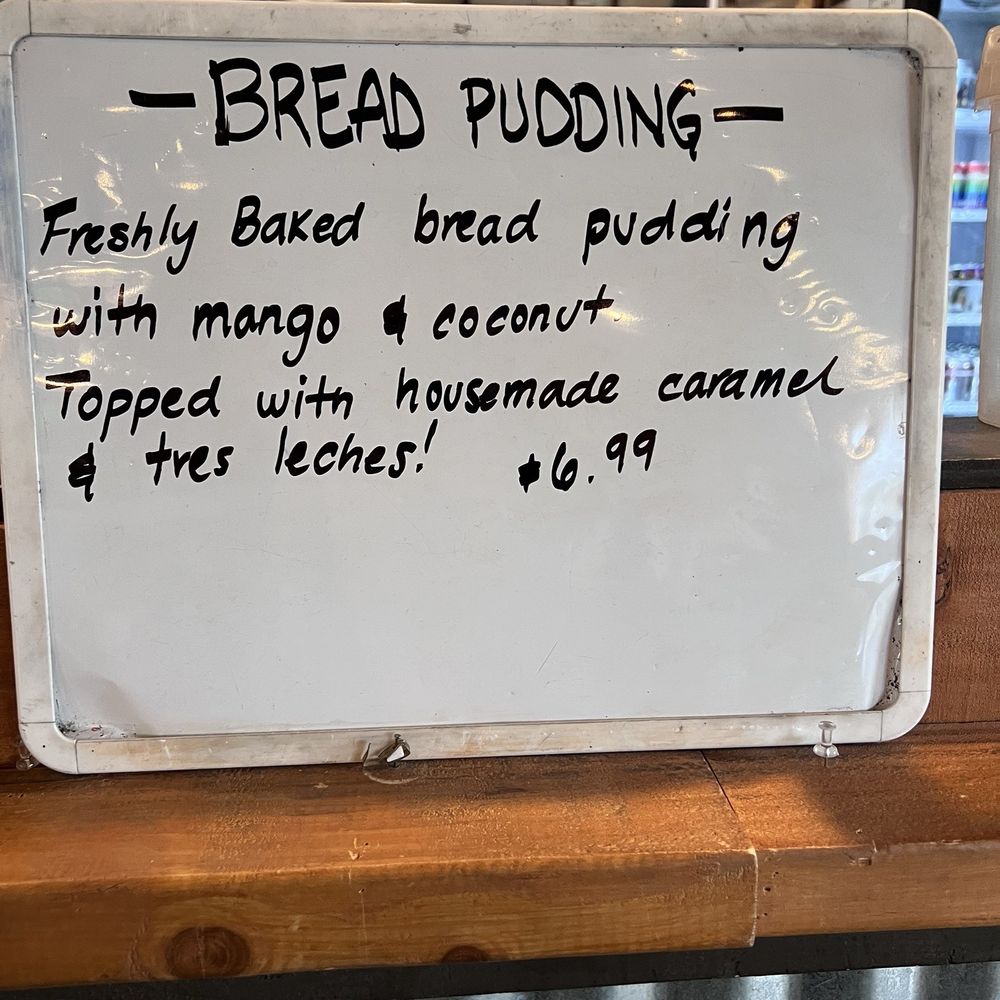 - BREAD PUDDING -
Freshly Baked bread pudding
with mango & coconut
Topped with housemade caramel
& tres leches! $6.99